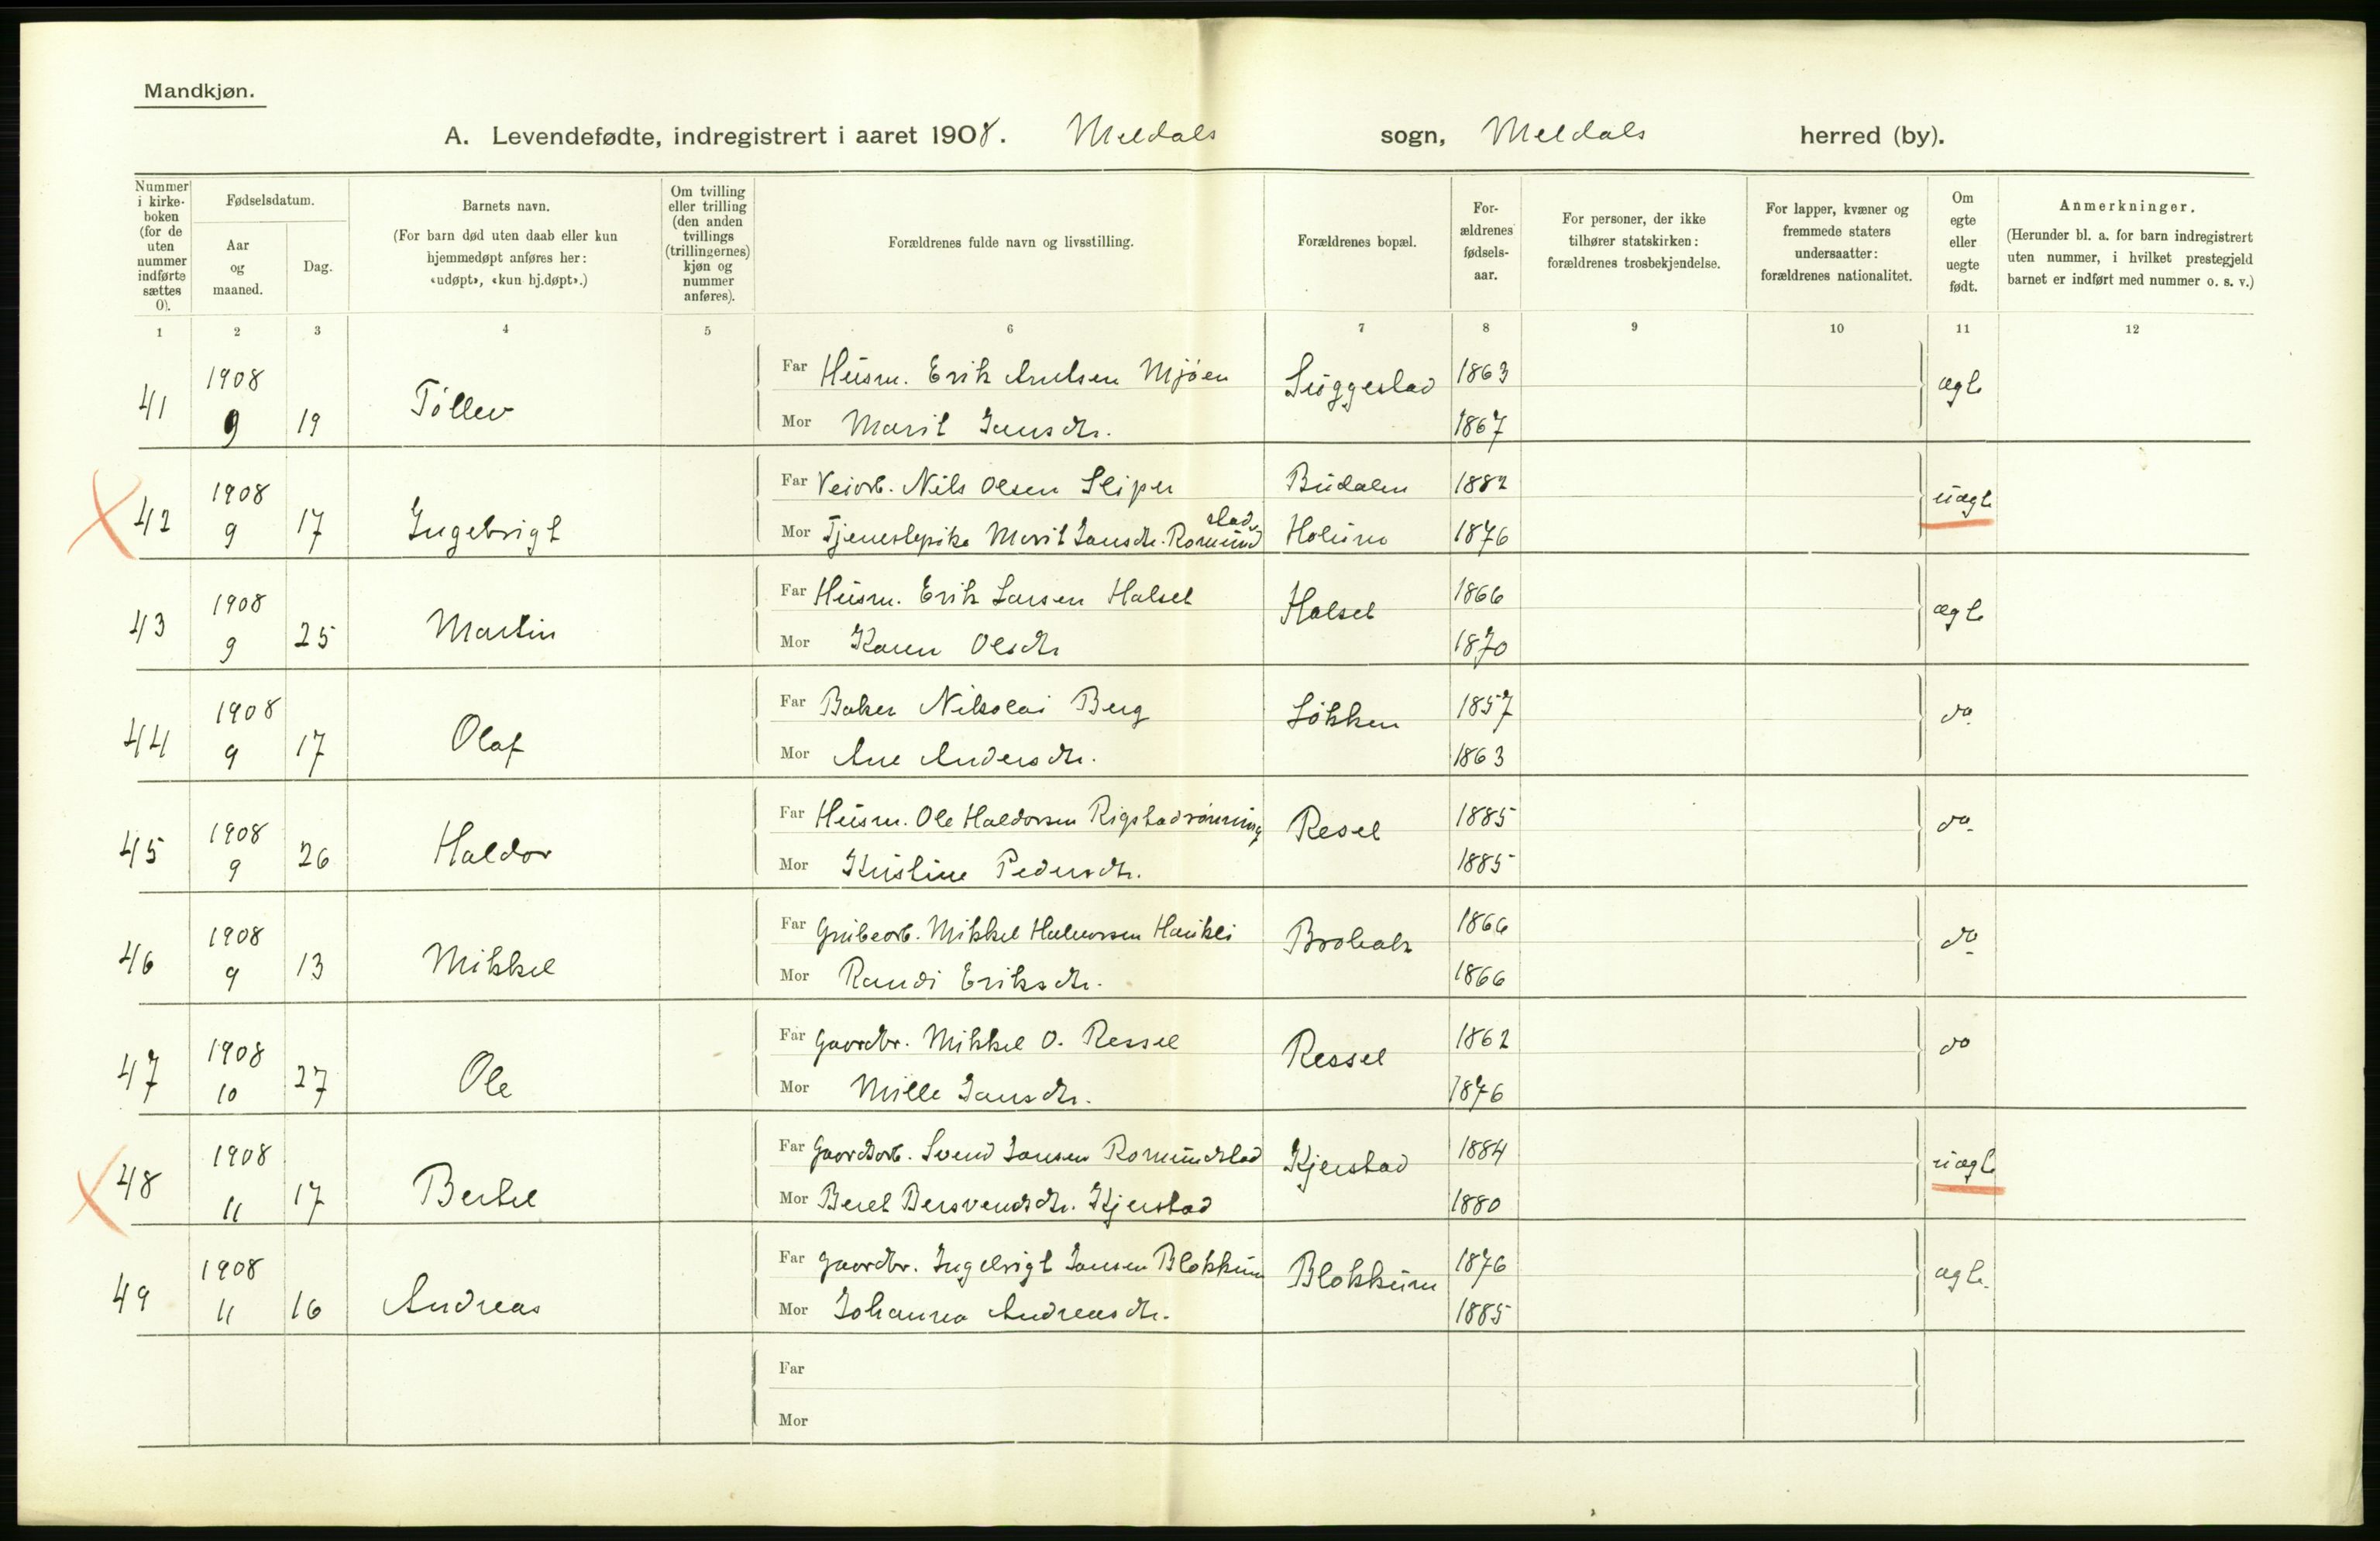 Mandkjøn.
A. Levendefødte, indregistrert i aaret 1908. Meldals sogn, Meldals herred (by).
Nummer i kirke-boken (for de uten nummer indførte sættes 0).
Fødselsdatum.
Aar og maaned.
Dag.
Barnets navn.
(For barn død uten daab eller kun hjemmedøpt anføres her: «udøpt», «kun hj.døpt».)
Om tvilling eller trilling (den anden tvillings (trillingernes) kjøn og nummer anføres).
Forældrenes fulde navn og livsstilling.
Forældrenes bopæl.
For-ældrenes fødsels-aar.
For personer, der ikke tilhører statskirken: forældrenes trosbekjendelse.
For lapper, kvæner og fremmede staters undersaatter: forældrenes nationalitet.
Om egte eller uegte født.
Anmerkninger.
(Herunder bl. a. for barn indregistrert uten nummer, i hvilket prestegjeld barnet er indført med nummer o. s. v.)
1 2 3 4 5 6 7 8 9 10 11 12
41 1908 9 19 Tøllev
Far Husm. Erik Arntsen Mjøen Snøggestad 1863 ægte
Mor Marit Jansdtr. 1867
42 1908 9 17 Ingebrigt
Far Veiarb. Nils Olsen Sliper Budalen 1882 uægte
Mor Tjenestepike Marit Jansdtr. Romundstad Holum 1876
43 1908 9 25 Martin
Far Husm. Erik Larsen Halset Halset 1866 ægte
Mor Karen Olsdtr 1870
44 1908 9 17 Olaf
Far Baker Nikolai Berg Løkken 1857 do
Mor Ane Andersdtr. 1863
45 1908 9 26 Haldor
Far Husm. Ole Haldorsen Rigstadrønning Resel 1885 do
Mor Kristine Pedersdtr. 1885
46 1908 9 13 Mikkel
Far Grubearb. Mikkel Halvorsen Haukli Brobak 1866 do
Mor Randi Eriksdtr. 1866
47 1908 10 27 Ole
Far Gaardbr. Mikkel O. Ressel Ressel 1862 do
Mor Mille Jansdtr. 1876
48 1908 11 17 Bertel
Far Gaardarb. Svend Jansen Romundstad Kjerstad 1884 uægte
Mor Beret Bersvendsdtr. Kjerstad 1880
49 1908 11 16 Andreas
Far Gaardbr. Ingebrigt Jansen Blokkum Blokkum 1876 ægte.
Mor Johanna Andreasdtr. 1885
Far
Mor